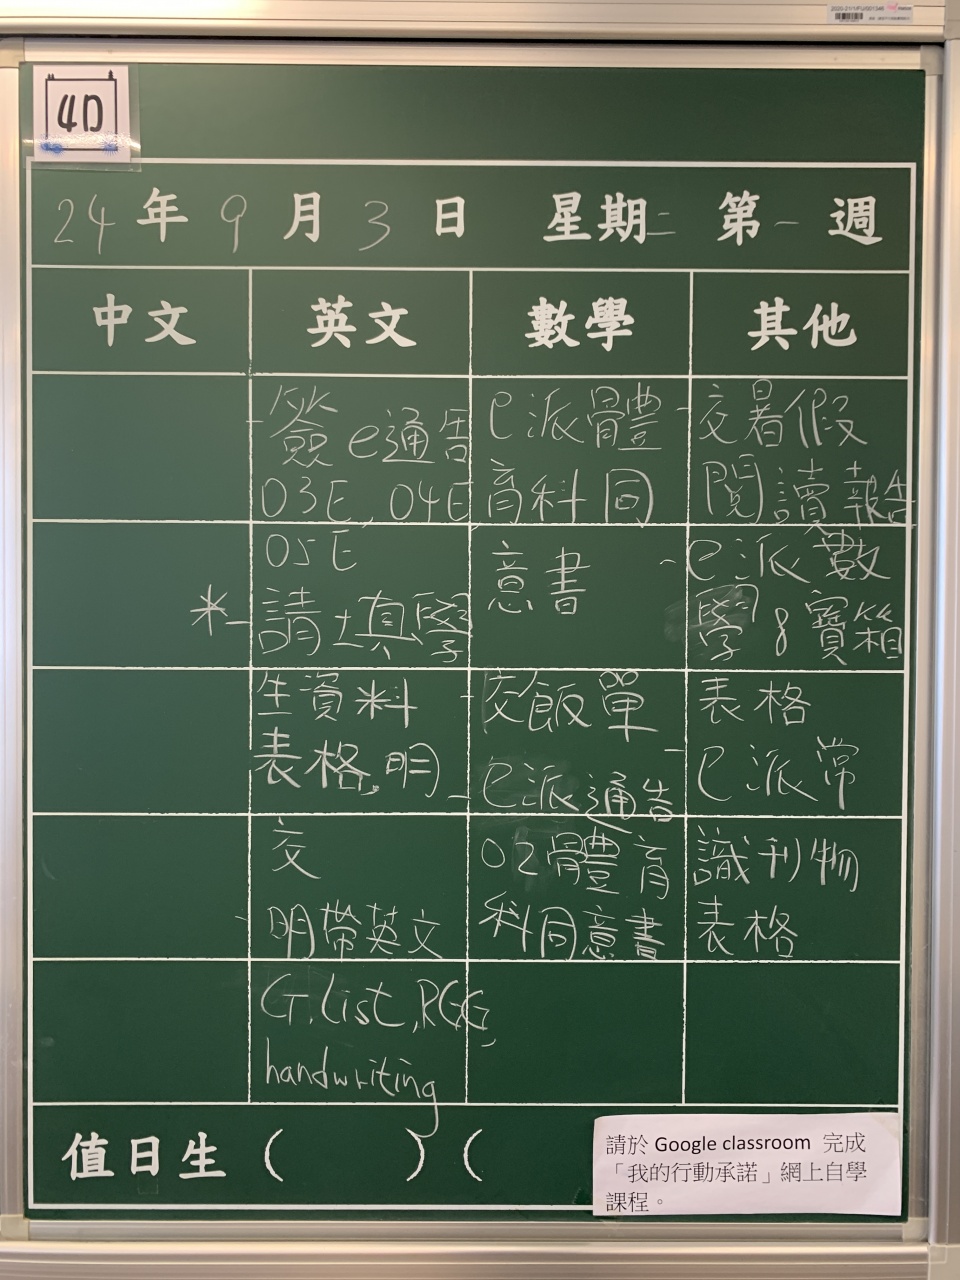 4D
24年9月3日 星期二 第一週
中文 英文 數學 其他
-簽e通告
03E, 04E
05E
*-請填學
生資料
表格,明
交
-明帶英文
G.list, RGG,
handwriting
已派體
育科同
意書
-交飯單
-已派通告
02體育
科同意書
-交暑假
閱讀報告
-已派數
學8寶箱
表格
-已派常
識刊物
表格
值日生( )(
請於 Google classroom 完成
「我的行動承諾」網上自學
課程。